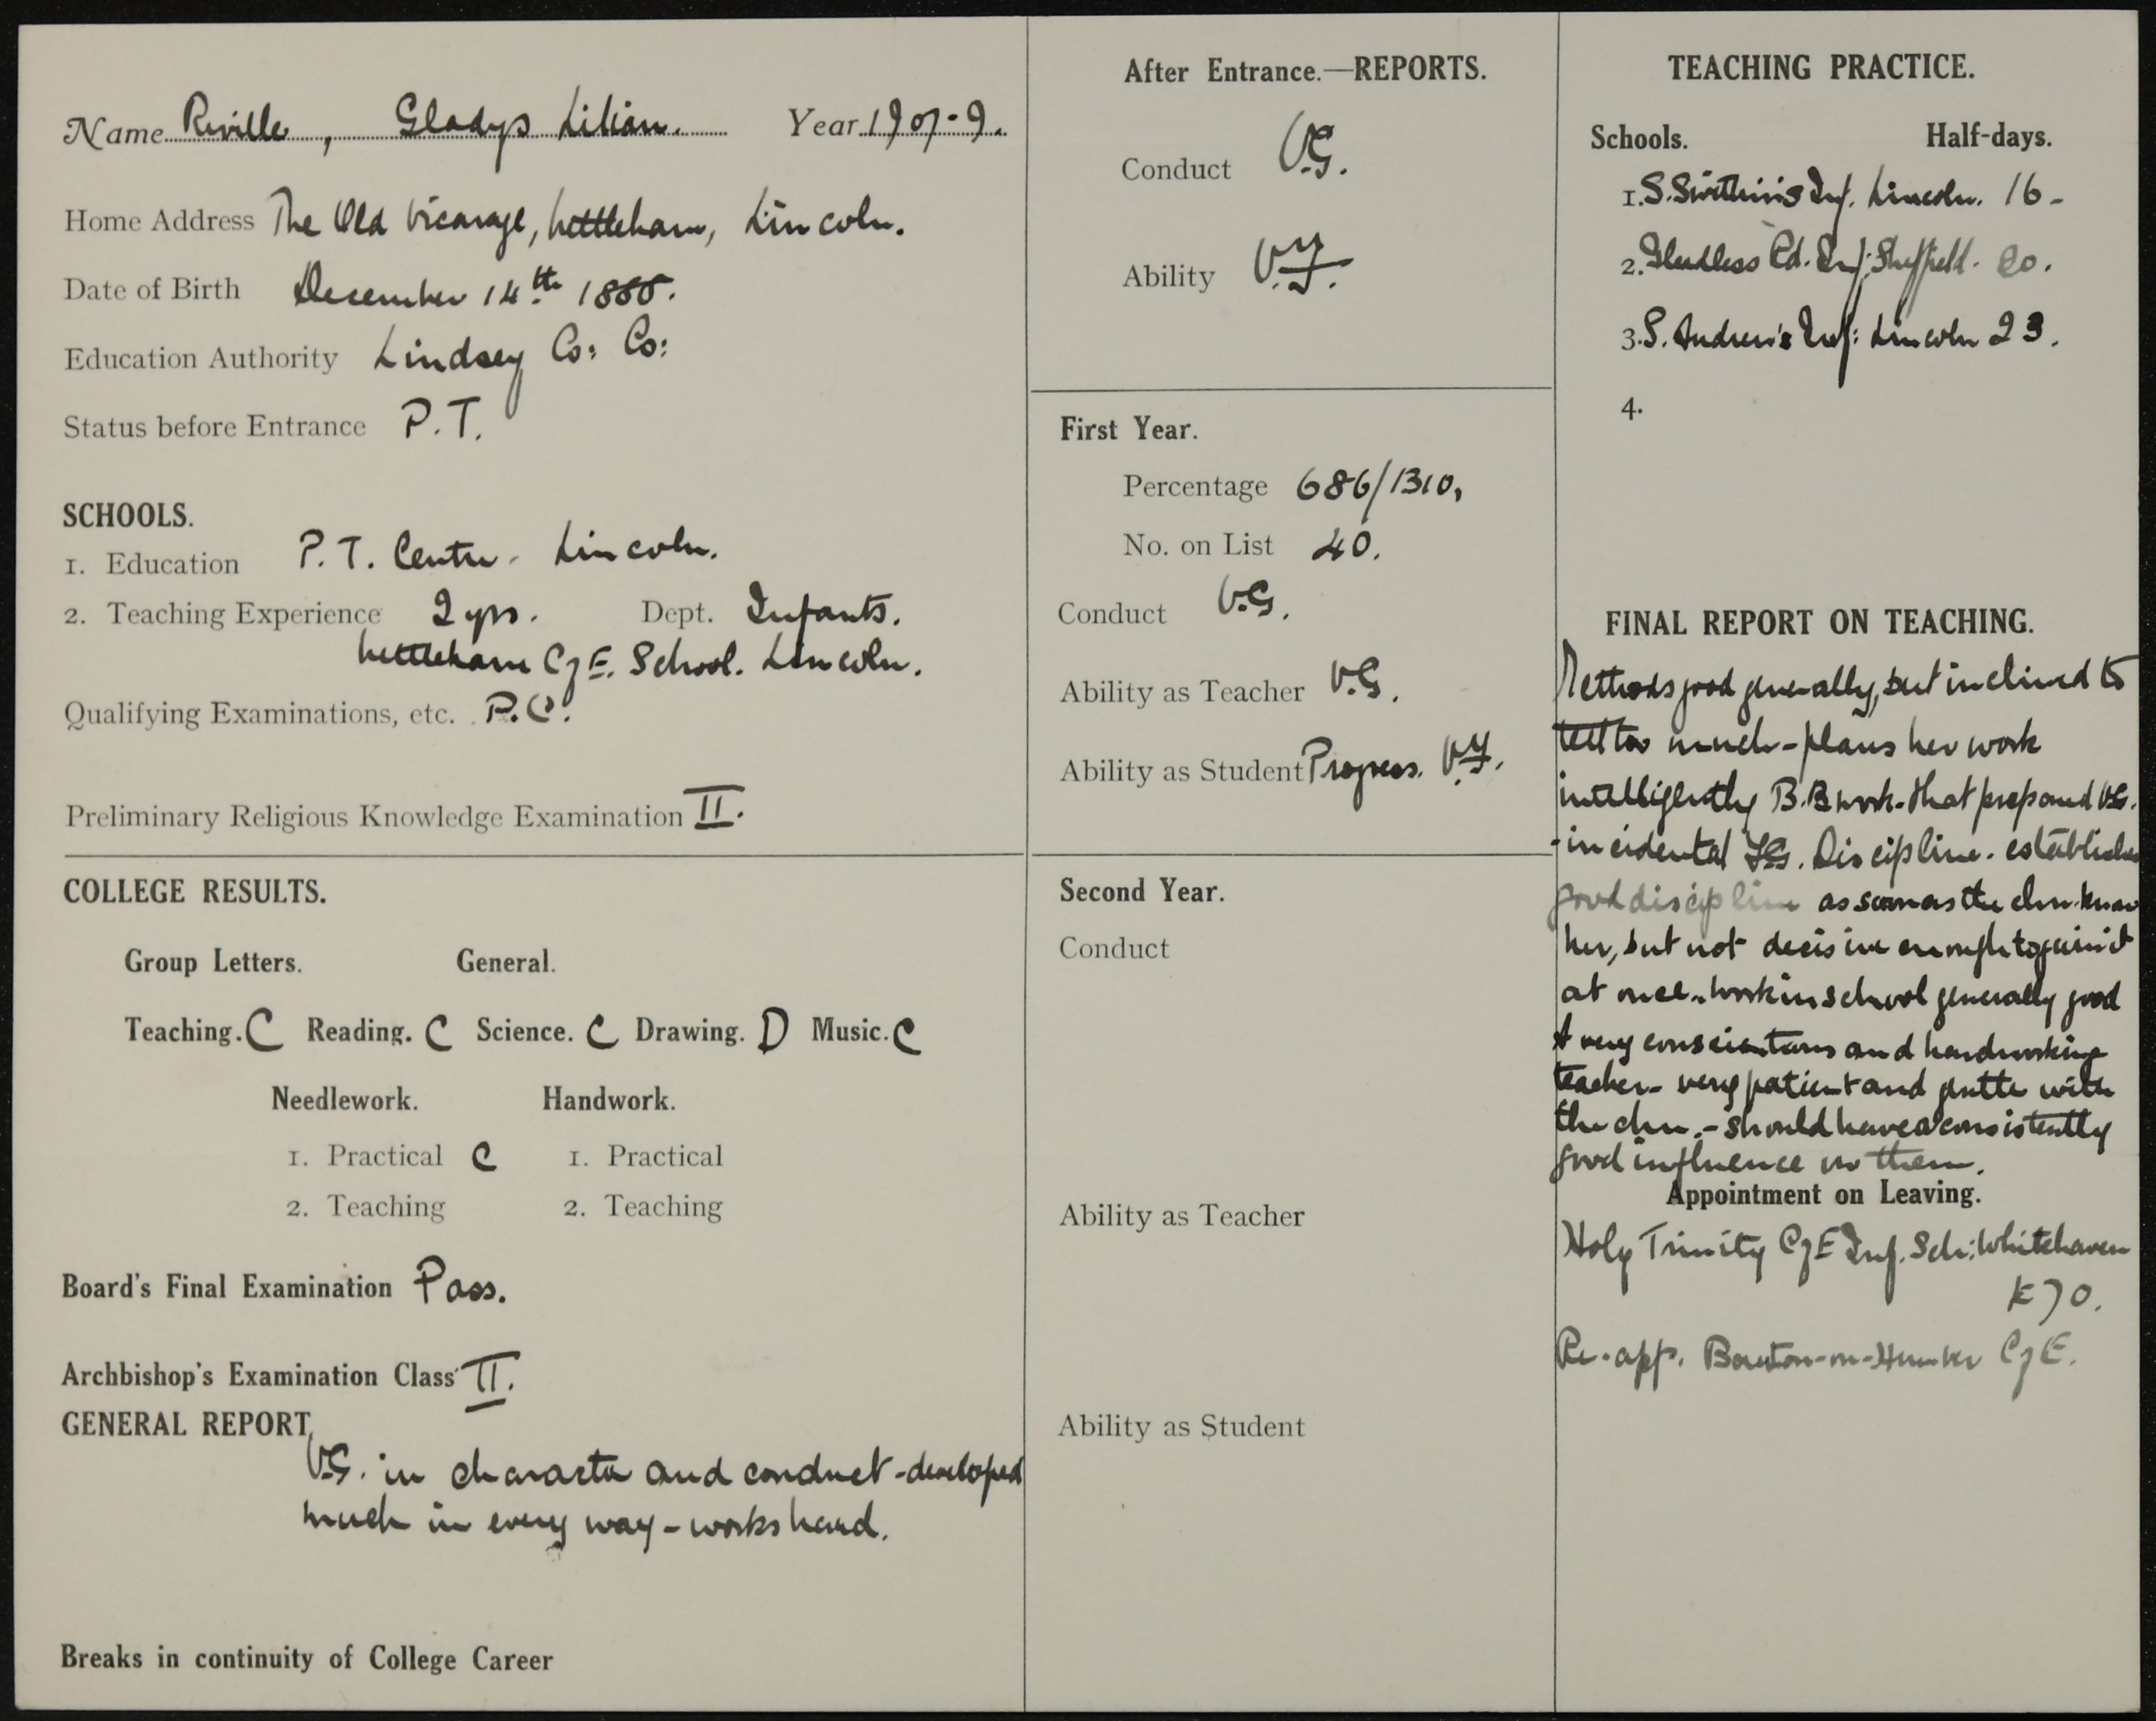 Name Riville, Gladys Lilian. Year 1907-9.
Home Address The Old Vicarage, Nettleham, Lincoln.
Date of Birth December 14th 1888.
Education Authority Lindsey Co: Co:
Status before Entrance P.T.
SCHOOLS.
1. Education P.T. Centre. Lincoln.
2. Teaching Experience 2 yrs. Dept. Infants.
Nettleham C of E. School. Lincoln.
Qualifying Examinations, etc. P.C.
Preliminary Religious Knowledge Examination II.
COLLEGE RESULTS.
Group Letters. General.
Teaching. C Reading. C Science. C Drawing. D Music. C
Needlework. Handwork.
1. Practical C 1. Practical
2. Teaching 2. Teaching
Board's Final Examination Pass.
Archbishop's Examination Class II.
GENERAL REPORT
V.G. in character and conduct - developed
much in every way - works hard.
Breaks in continuity of College Career
After Entrance.—REPORTS.
Conduct V.G.
Ability V.F.
First Year.
Percentage 686/1310.
No. on List 40.
Conduct V.G.
Ability as Teacher V.G.
Ability as Student Progress. V.F.
Second Year.
Conduct
Ability as Teacher
Ability as Student
TEACHING PRACTICE.
Schools. Half-days.
1. S. Swithin's Inf. Lincoln. 16 -
2. Gleadless Rd. Inf: Sheffield. 20.
3. S. Andrew's Inf: Lincoln 23.
4.
FINAL REPORT ON TEACHING.
Methods good generally, but inclined to
tell too much - plans her work
intelligently B.B work - that prepared V.G.
- incidental F.G. Discipline - establishes
good discipline as soon as the chn. know
her, but not decisive enough to gain it
at once. Work in school generally good
A very conscientious and hardworking
teacher - very patient and gentle with
the chn. - should have a consistently
good influence on them.
Appointment on Leaving.
Holy Trinity C of E Inf. Sch: Whitehaven
£70.
Re-app. Barton-on-Humber C of E.